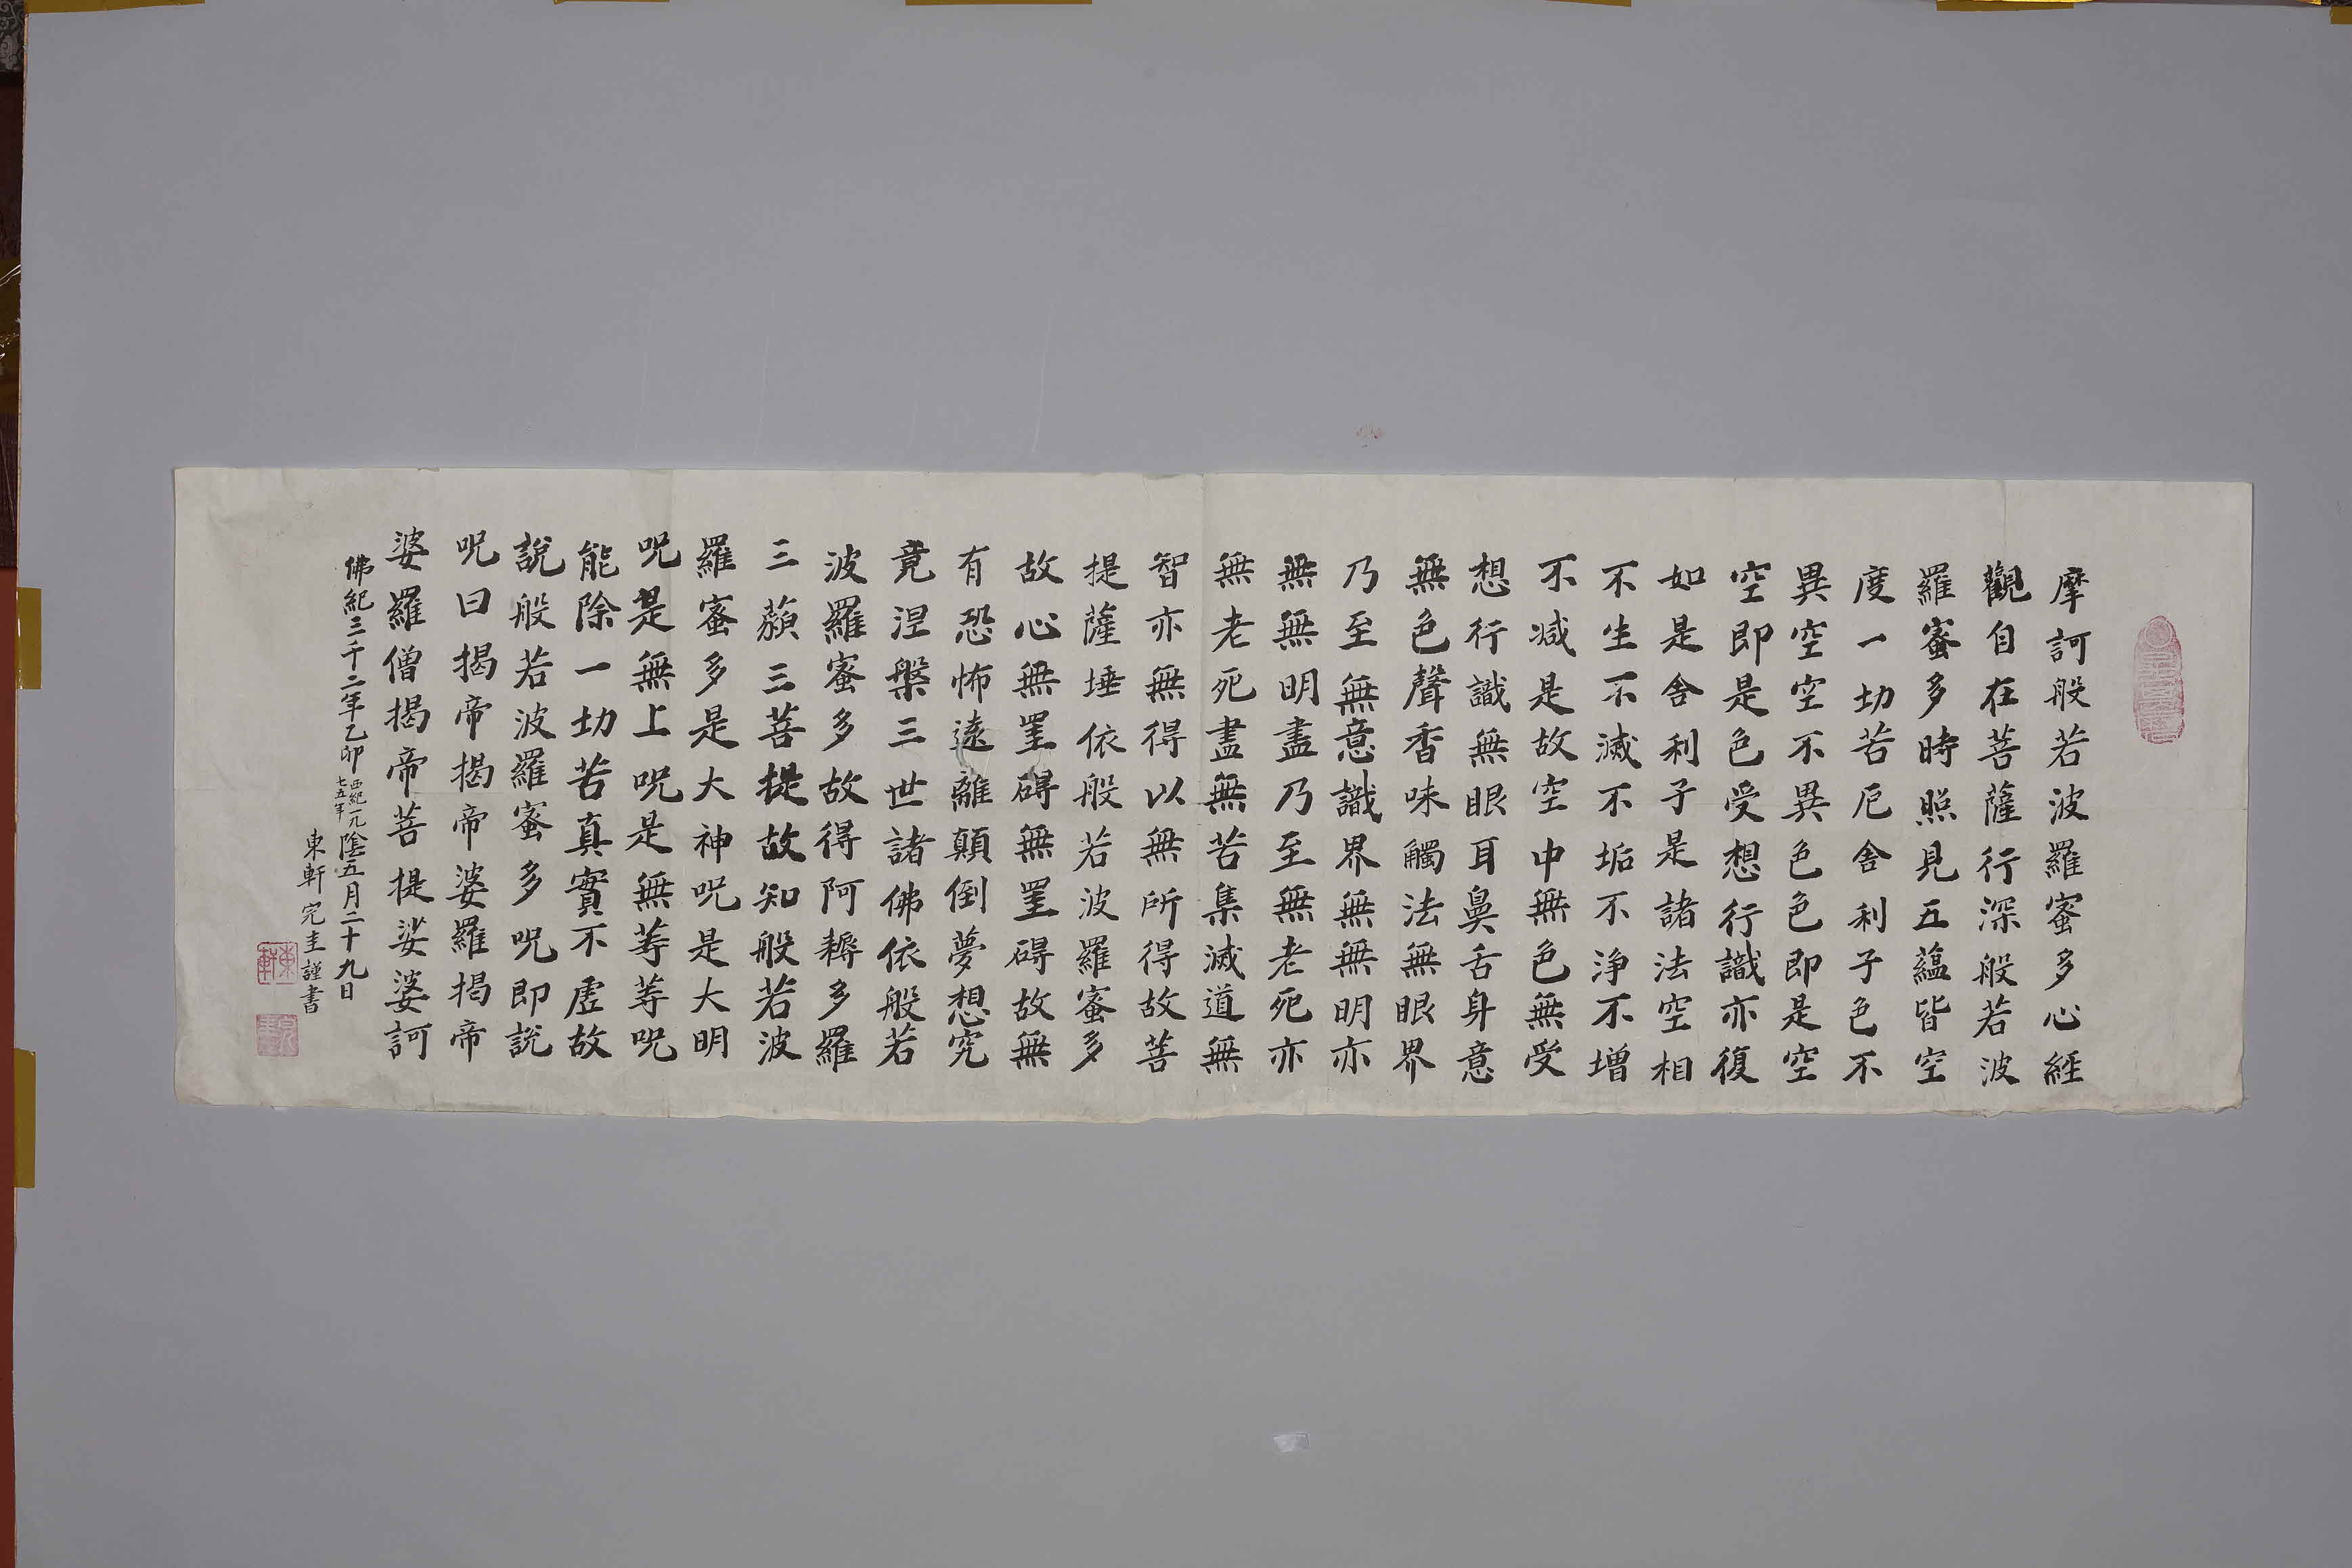 摩訶般若波羅蜜多心經
觀自在菩薩行深般若波
羅蜜多時照見五蘊皆空
度一切苦厄舍利子色不
異空空不異色色即是空
空即是色受想行識亦復
如是舍利子是諸法空相
不生不滅不垢不淨不增
不減是故空中無色無受
想行識無眼耳鼻舌身意
無色聲香味觸法無眼界
乃至無意識界無無明亦
無無明盡乃至無老死亦
無老死盡無苦集滅道無
智亦無得以無所得故菩
提薩埵依般若波羅蜜多
故心無罣碍無罣碍故無
有恐怖遠離顛倒夢想究
竟涅槃三世諸佛依般若
波羅蜜多故得阿耨多羅
三藐三菩提故知般若波
羅蜜多是大神呪是大明
呪是無上呪是無等等呪
能除一切苦真實不虛故
說般若波羅蜜多呪即說
呪曰揭帝揭帝婆羅揭帝
婆羅僧揭帝菩提娑婆訶
佛紀三千二年乙卯西紀一九七五年陰五月二十九日
東軒完圭謹書
東軒